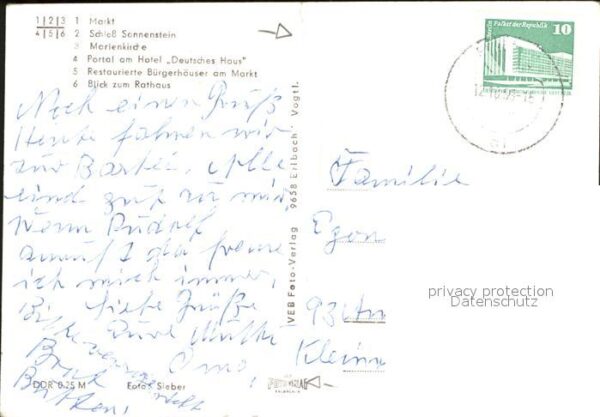 1|2|3 1 Markt
4|5|6 2 Schloß Sonnenstein
3 Marienkirche
4 Portal am Hotel „Deutsches Haus"
5 Restaurierte Bürgerhäuser am Markt
6 Blick zum Rathaus
Noch einen Gruß
Heute fahren wir
zur Bärbel, alle
sind gut zu mir
Wenn Rudolf
anruft da freue
ich mich immer,
liebe Grüße
Eure Mutti
Oma
DDR 0,25 M Foto: Sieber
VEB Foto-Verlag 9658 Erlbach Vogtl.
Palast der Republik
10
Familie
Egon
Klein
privacy protection
Datenschutz